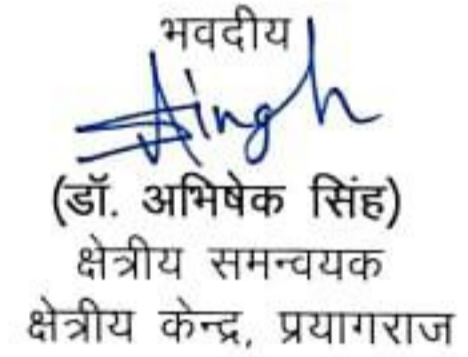 भवदीय
ASingh
(डॉ. अभिषेक सिंह)
क्षेत्रीय समन्वयक
क्षेत्रीय केन्द्र, प्रयागराज